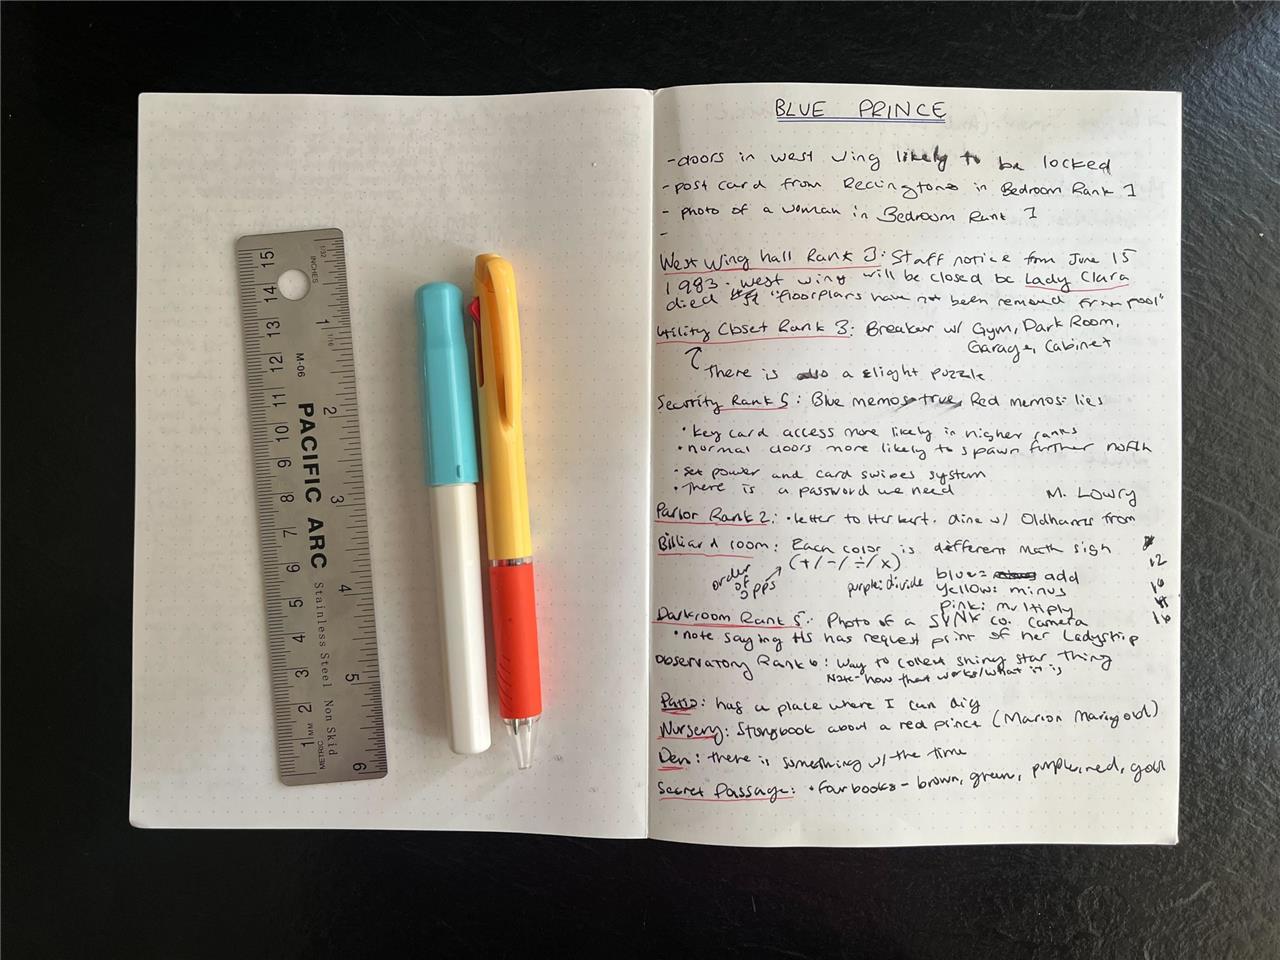 INCHES
1/32
1/16
15 14 13 12 11 10 9 8 7 6 5 4 3 2 1
M-06
PACIFIC ARC
Stainless Steel Non Skid
1 2 3 4 5 6
MM
METRIC
BLUE PRINCE
-doors in west wing likely to be locked
-post card from in Bedroom Rank 1
- photo of a woman in Bedroom Rank 1
-
West Wing hall Rank 3: Staff notice from June 15
1983. West wing will be closed bc Lady Clara
died "floorplans have not been removed from pool"
Utility Closet Rank 8: Breaker w/ Gym, Dark Room,
Garage, Cabinet
There is also a slight puzzle
Security Rank 5: Blue memos true, Red memos: lies
• key card access more likely in higher ranks
• normal doors more likely to spawn further north
• set power and card swipes system
• There is a password we need
M. Lowry
Parlor Rank 2: • letter to Herbert. dine w/ from
Billiard room: Each color is different math sign
(+/-/÷/x)
order of opps
purple: divide
blue= add
yellow: minus
pink: multiply
12
16
Darkroom Rank 5: Photo of a SYNK co. camera
• note saying HS has request print of her Ladyship
Observatory Rank 6: way to collect shiny star thing
Note-how that works/what it is
Patio: has a place where I can dig
Nursery: Storybook about a red prince (Marion Marigold)
Den: there is something w/ the time
Secret Passage: • four books - brown, green, purple, red, gold